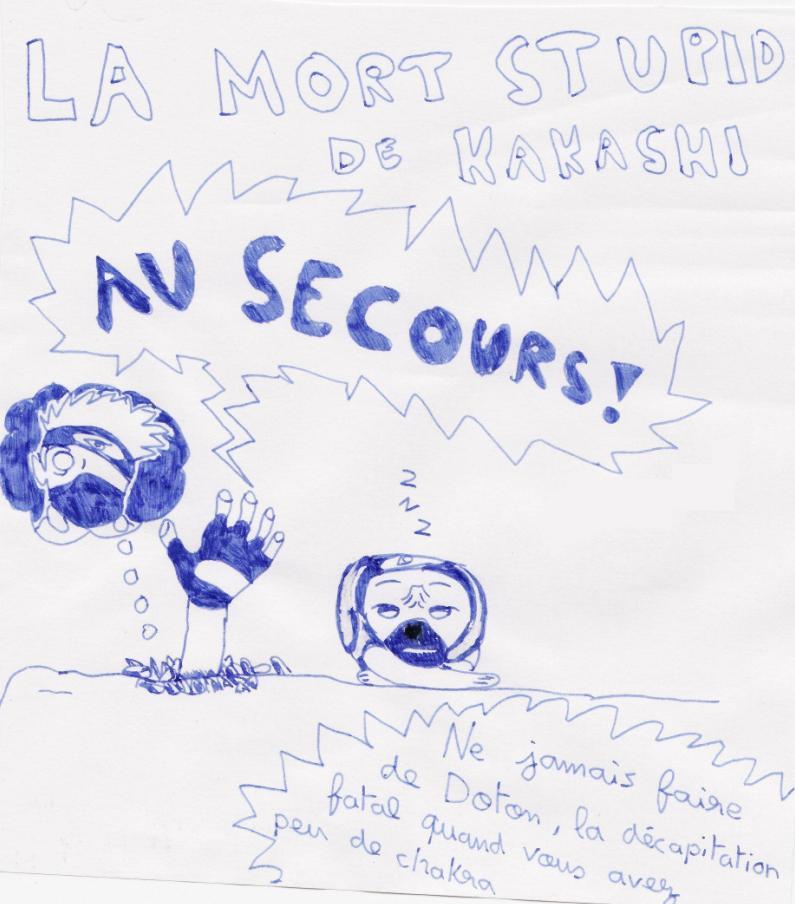 LA MORT STUPID
DE KAKASHI
AU SECOURS!
z
z
z
Ne jamais faire
de Doton, la décapitation
fatal quand vous avez
peu de chakra